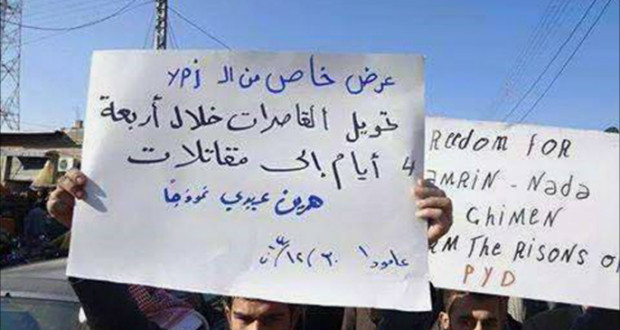 عرض خاص من الـ ypj
تحويل القاصرات خلال أربعة
4 أيام إلى مقاتلات
همرين عيدي نموذجاً
عامودا
REEDOM FOR
AMRIN - NADA
CHIMEN
M THE RISONS O
PYD